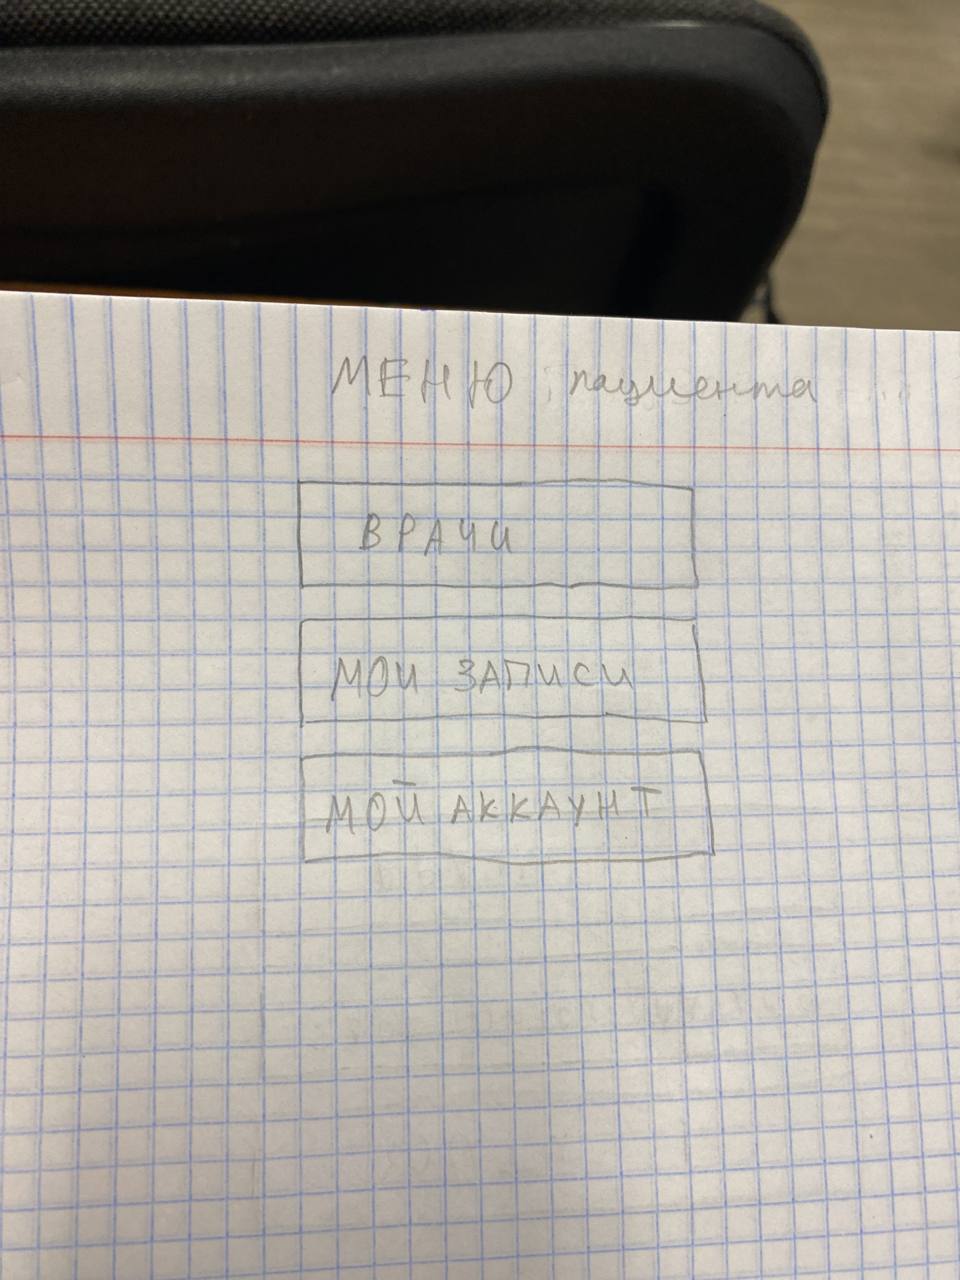 МЕНЮ пациента
ВРАЧИ
МОИ ЗАПИСИ
МОЙ АККАУНТ